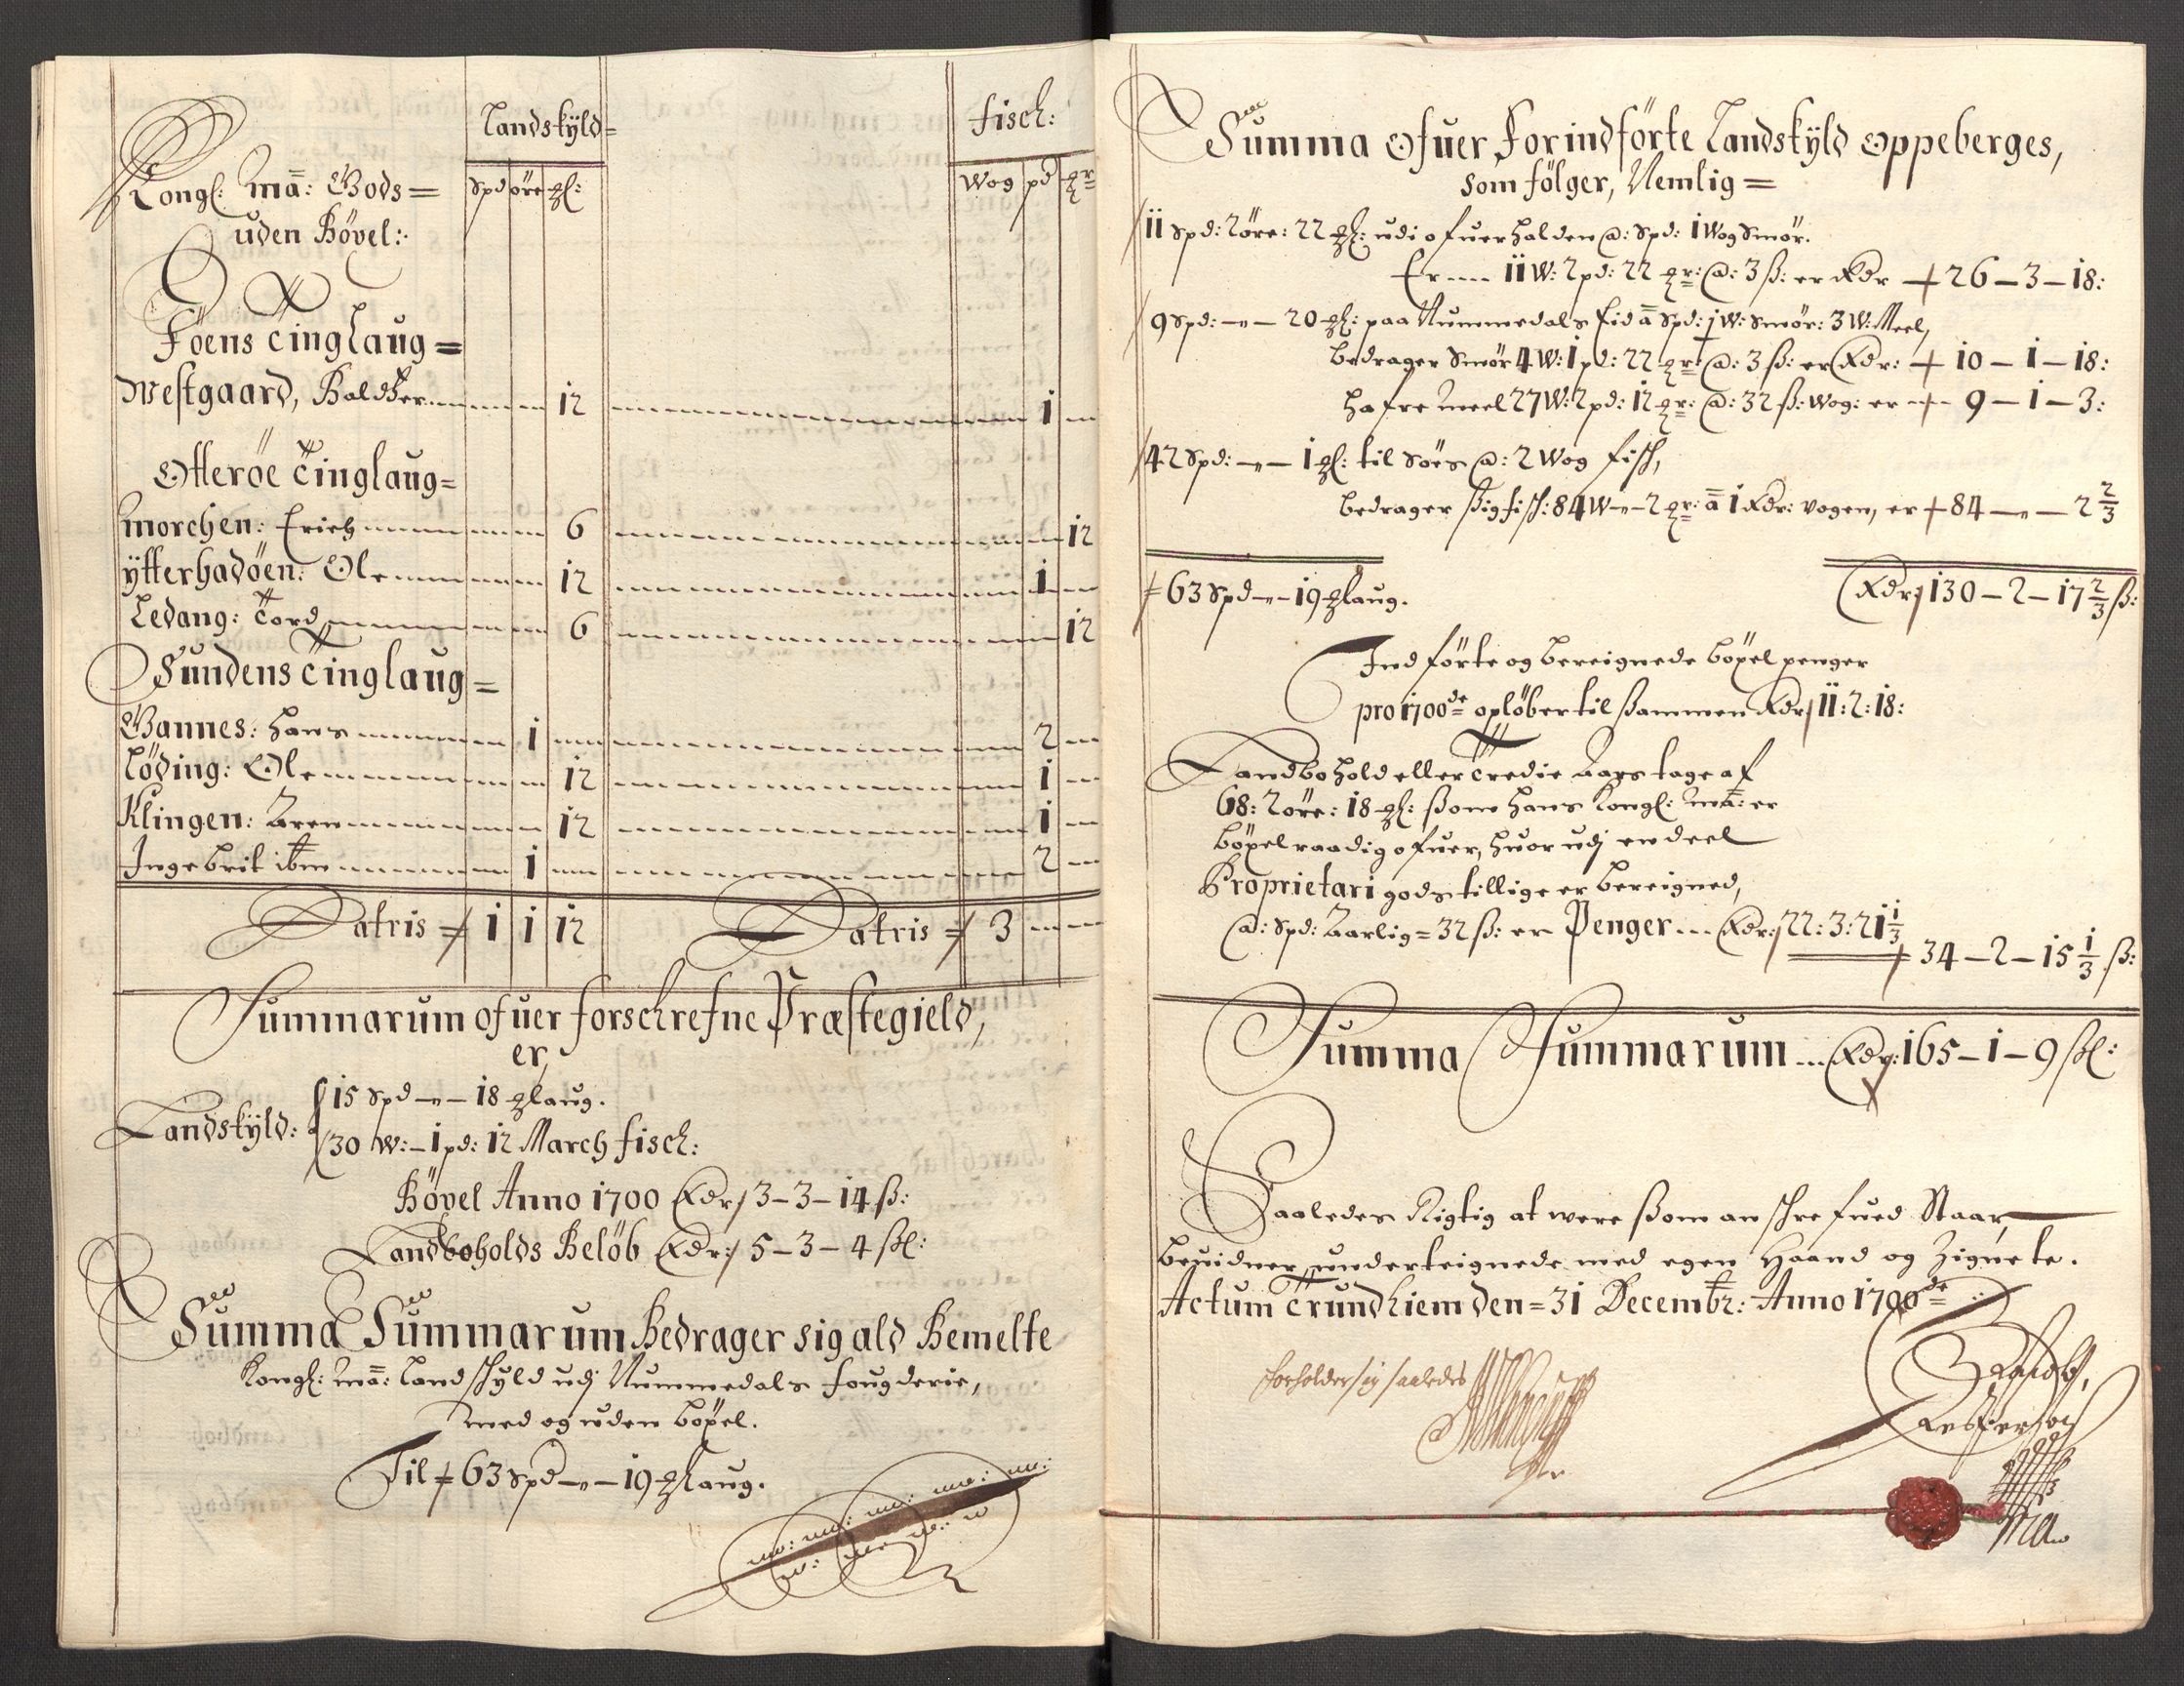 Landskÿld= fisch:
Kongl: Maÿ: Gods= Spd öre gl: Wog pd
uden Bövel:
Föens tinglaug=
Westgaard, Baldzer 12 1
Otteröe tinglaug=
Morchen: Erich 6 12
ÿtterhadöen: Ole 12 1
Ledang: Tord 6 12
Sundens tinglaug=
Gannes: Hans 1 2
Löding: Ole 12 1
Klingen: Aren 12 1
Ingebrit ibm 1 2
Latris = 1 1 12 Latris = 3
Summarum ofuer forschrefne Præstegield,
er,
Landskÿld: 15 Spd — 18 glaug.
30 W: – 1 pd: 12 March fisch:
Bövel Anno 1700 Rdr 3–3–14 ß:
Landboholds Belöb Rdr: 5–3–4 ßl:
Summa Summarum Bedrager sig ald Bemelte
Kongl: Maÿ: Landschyld udj Nummedals fougderie,
med og uden böxel.
Til 63 Spd — 19 glaug.
Summa Ofuer Forindförte Landskÿld Oppeberges,
som fölger, Nemlig =
11 Spd: 2 öre: 22 gl: udi ofuerhalden @: Spd: 1 Wog Smör.
Er 11 W: 2 pd: 22 @: 3 ß: er Rdr 26–3–18:
9 Spd: — 20 gl: paa Nummedals Eid à Spd: ½ W: Smör: 3 W: Meel,
bedrager Smör 4 W: 1 pd: 22 @: 3 ß: er Rdr: 10–1–18:
hafre meel 27 W: 2 pd: 12 @: 32 ß: Wog: er 9–1–3:
42 Spd: — 1 gl: til Söes @: 2 Wog fisch,
bedrager sig fisch: 84 W — 2 à 1 Rdr: vogen, er 84 — 2 2/3
63 Spd — 19 glaug. Rdr 130–2–17 2/3 ß:
Indförte og bereignede böxel penger
pro 1700de opløber til sammen Rdr 11:2:18:
Landbohold eller Tredie Aars tage af
68: 2 öre: 18 gl: som hans Kongl: Maÿ: er
böxel raadig ofuer, huor udj en deel
Proprietari gods tillige er bereigned,
@: Spd: Aarlig = 32 ß: er Penger Rdr: 22:3:21 1/3
34–2–15 1/3 ß:
Summa Summarum Rdr: 165–1–9 ßl:
Saaledes Rigtig at were som anschrefued Staar,
beuidner underteignede med egen Haand og Zignete.
Actum Trundhiem den = 31 Decembr: Anno 1700de
forholder sig saaledes